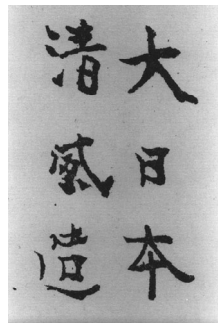 大日本
清風造